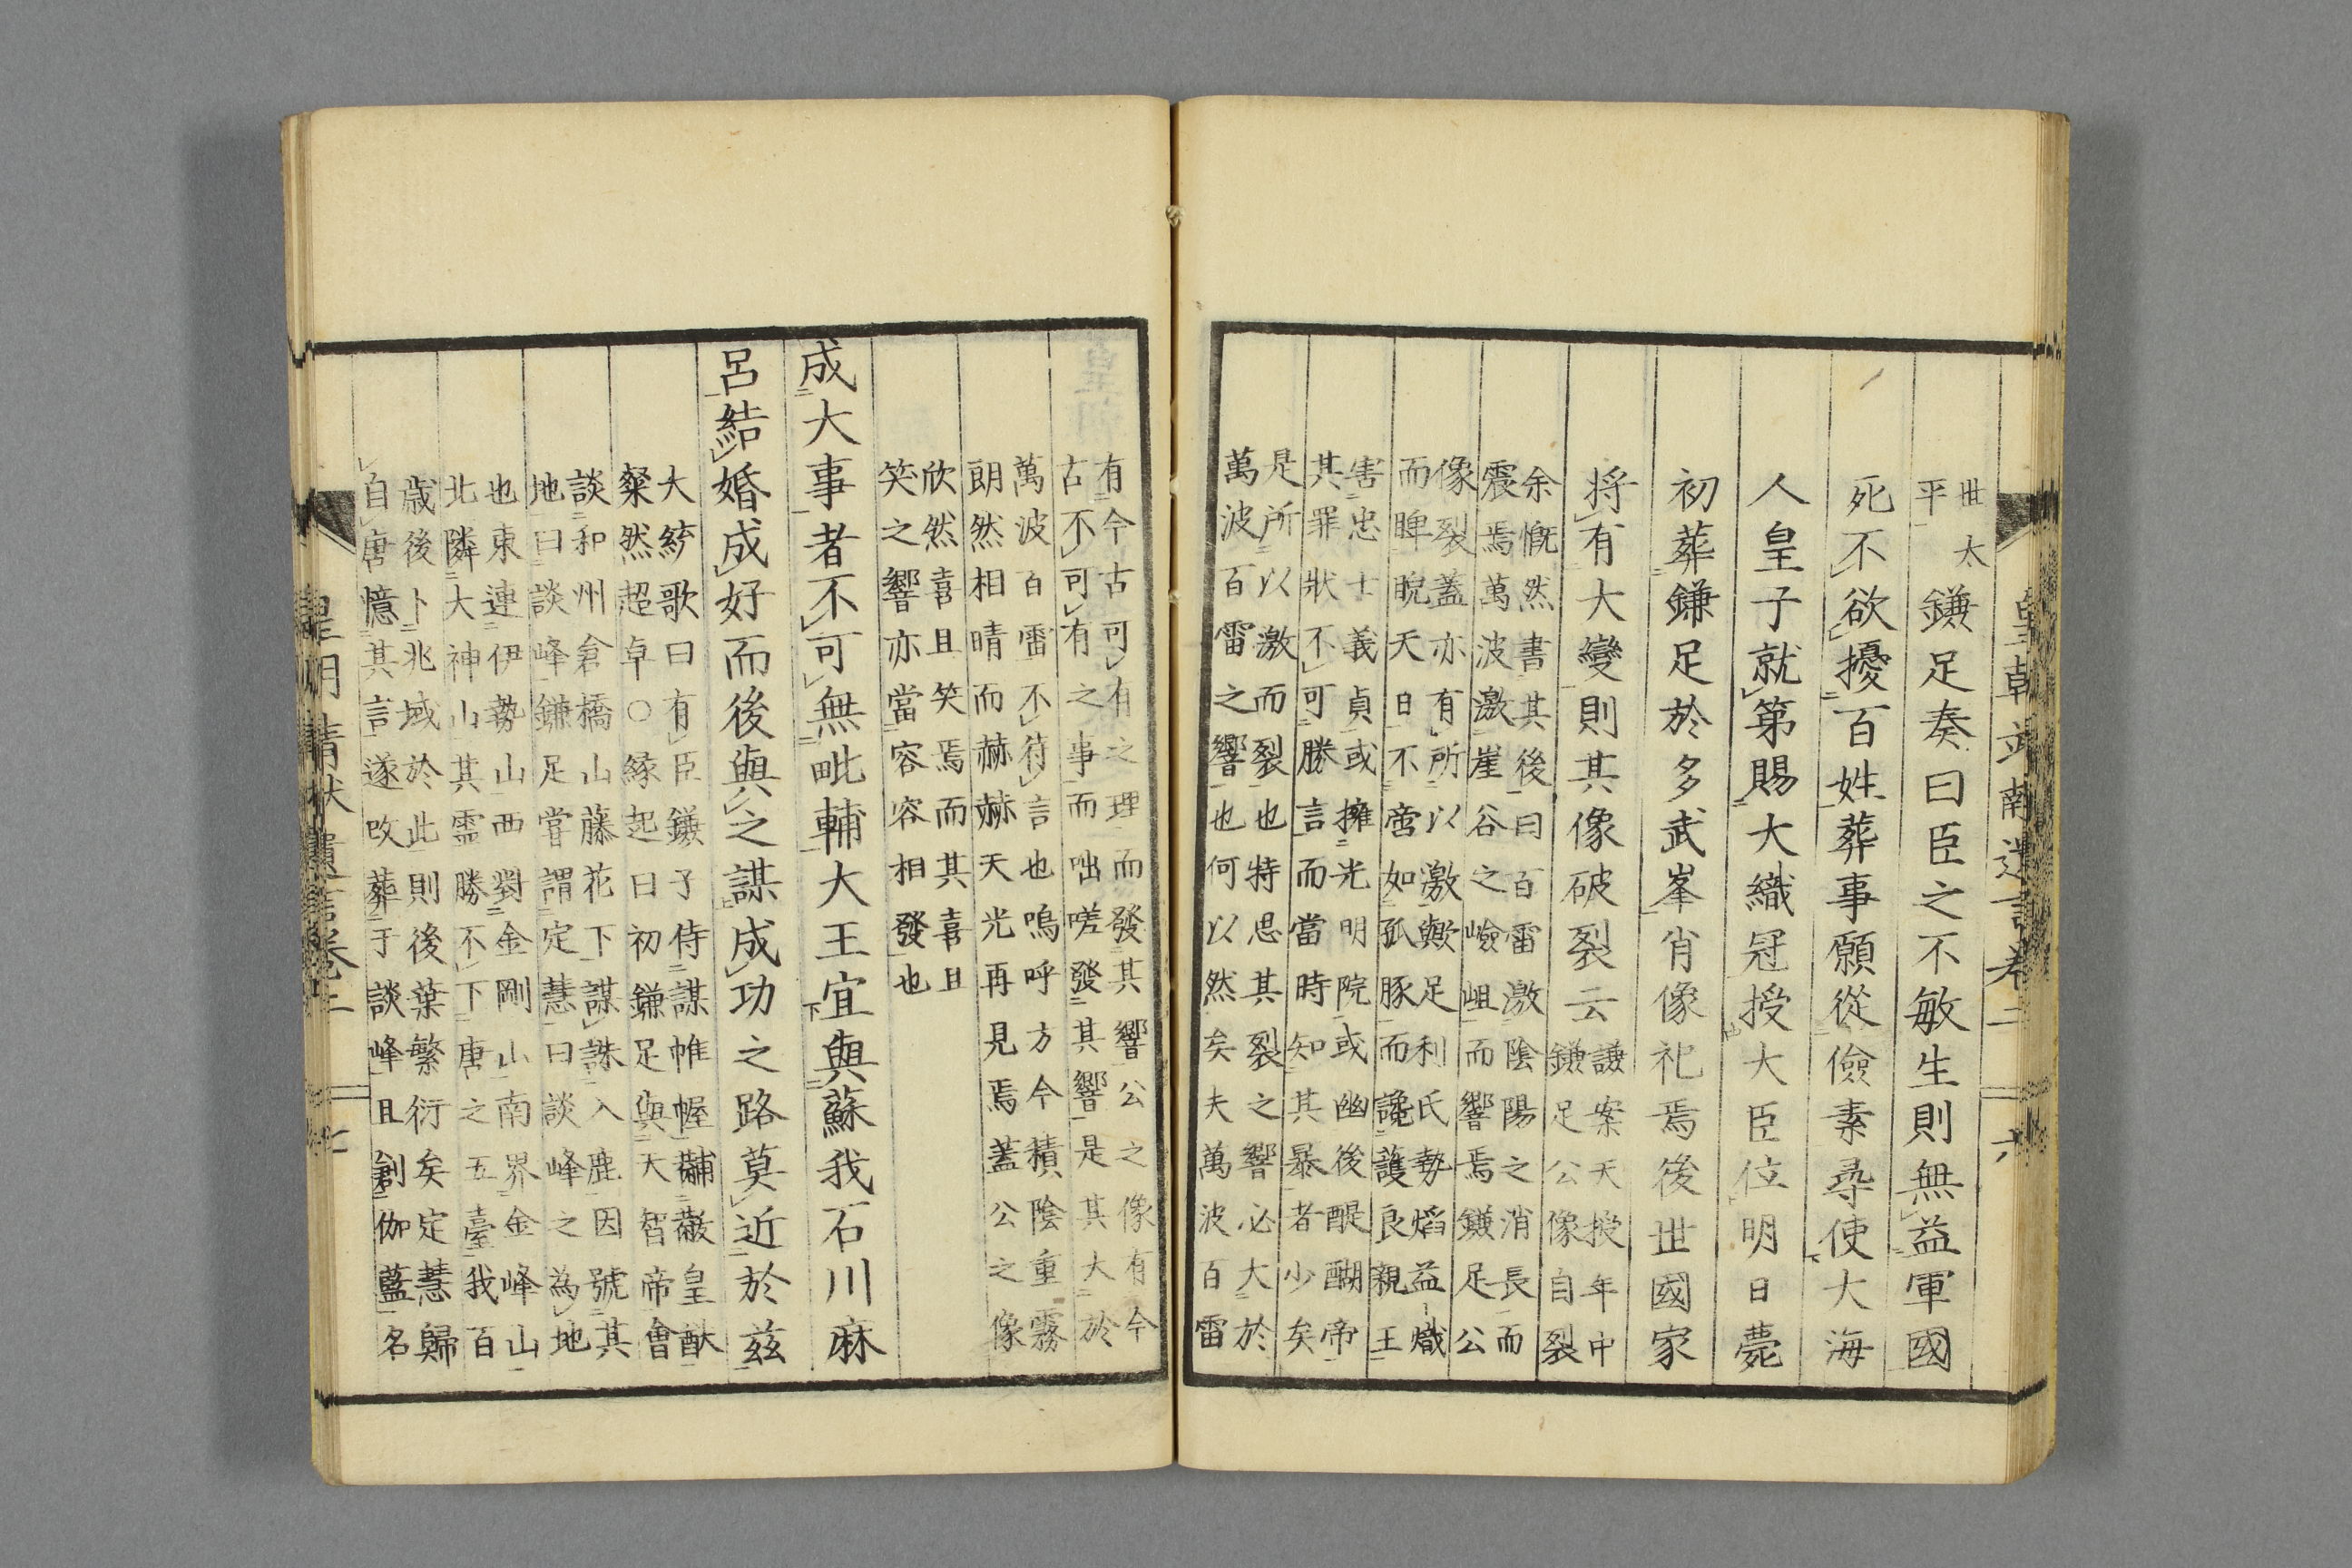 世太
平
鎌足奏曰臣之不敏生則無益軍國
死不欲擾百姓葬事願從儉素尋使大海
人皇子就第賜大織冠授大臣位明日薨
初葬鎌足於多武峯肖像祀焉後世國家
將有大變則其像破裂云
謙案天授年中
鎌足公像自裂
余慨然書其後曰百雷激陰陽之消長而
震焉萬波激崖谷之嶮岨而響焉鎌足公
像裂蓋亦有所以激歟足利氏勢焰益熾
而睥睨天日不啻如孤豚而讒護良親王
害忠士義貞或擁光明院或幽後醍醐帝
其罪狀不可勝言而當時知其暴者少矣
是所以激而裂也特思其裂之響必大於
萬波百雷之響也何以然矣夫萬波百雷
有今古可有之理而發其響公之像有今
古不可有之事而咄嗟發其響是其大於
萬波百雷不待言也嗚呼方今積陰重霧
朗然相晴而赫赫天光再見焉蓋公之像
欣然喜且笑焉而其喜且
笑之響亦當容容相發也
成大事者不可無毗輔大王宜與蘇我石川麻
呂結婚成好而後與之謀成功之路莫近於茲
大統歌曰有臣鎌子侍謀帷幄黼黻皇猷
粲然超卓○緣起曰初鎌足與天智帝會
談和州倉橋山藤花下謀誅入鹿因號其
地曰談峰鎌足嘗謂定慧曰談峰之為地
也東連伊勢山西對金剛山南界金峰山
北隣大神山其靈勝不下唐之五臺我百
歲後卜兆域於此則後葉繁衍矣定慧歸
自唐憶其言遂改葬于談峰且創伽藍名